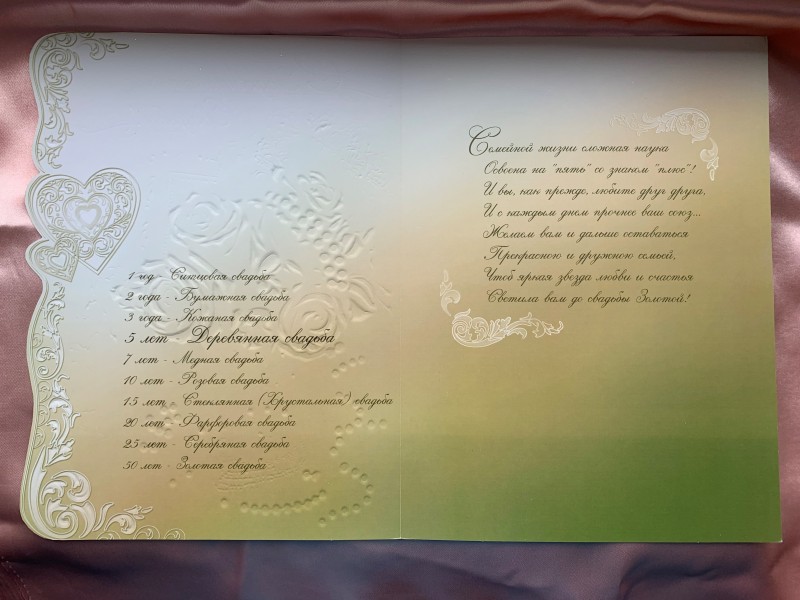 1 год - Ситцевая свадьба
2 года - Бумажная свадьба
3 года - Кожаная свадьба
5 лет - Деревянная свадьба
7 лет - Медная свадьба
10 лет - Розовая свадьба
15 лет - Стеклянная (Хрустальная) свадьба
20 лет - Фарфоровая свадьба
25 лет - Серебряная свадьба
50 лет - Золотая свадьба
Семейной жизни сложная наука
Освоена на "пять" со знаком "плюс"!
И вы, как прежде, любите друг друга,
И с каждым днем прочнее ваш союз...
Желаем вам и дальше оставаться
Прекрасною и дружною семьей,
Чтоб яркая звезда любви и счастья
Светила вам до свадьбы Золотой!